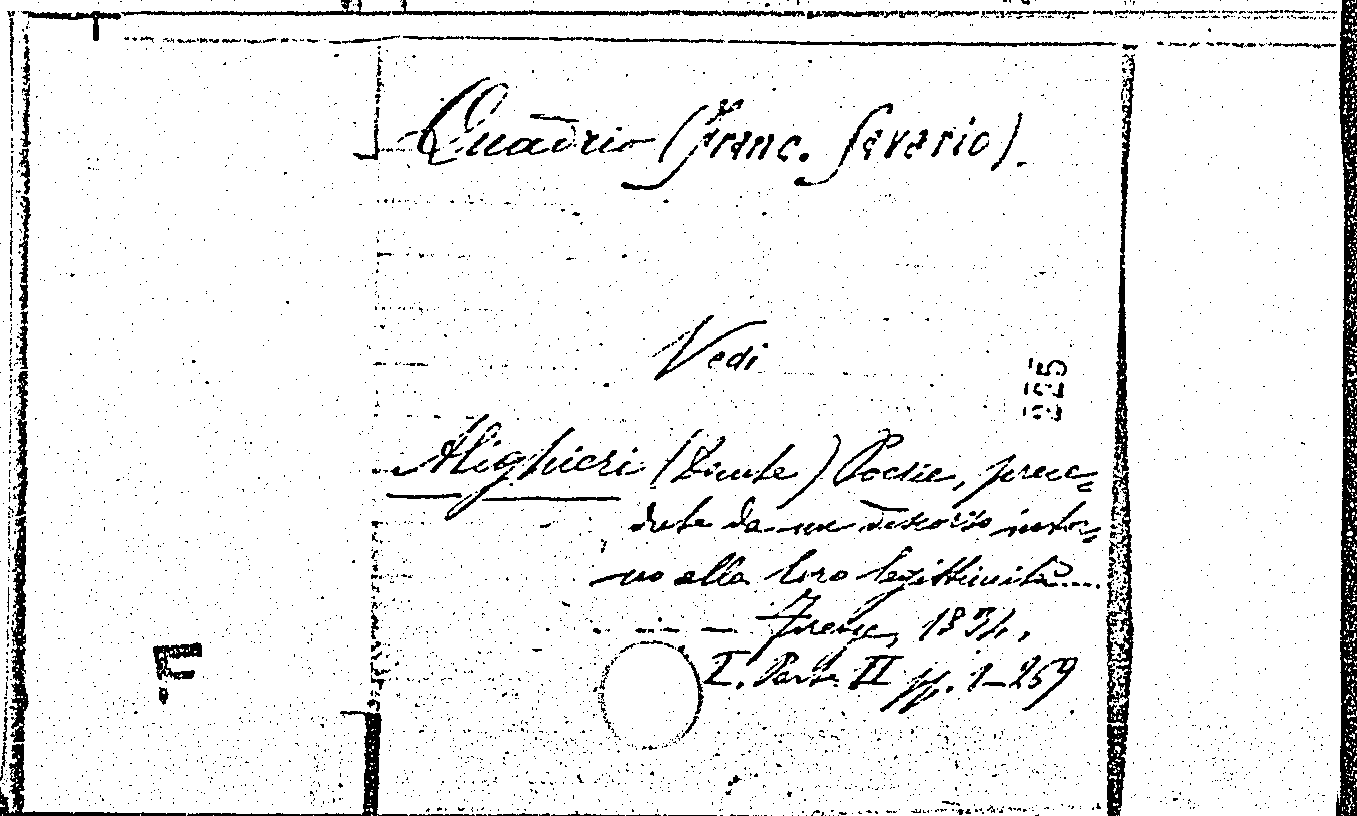 Quadrio (Franc. Saverio).
Vedi
225
Alighieri (Dante) Poesie, prece=
dute da un discorso intor=
no alla loro legittimità....
Firenze, 1834,
I. Parte II pp. 1-259